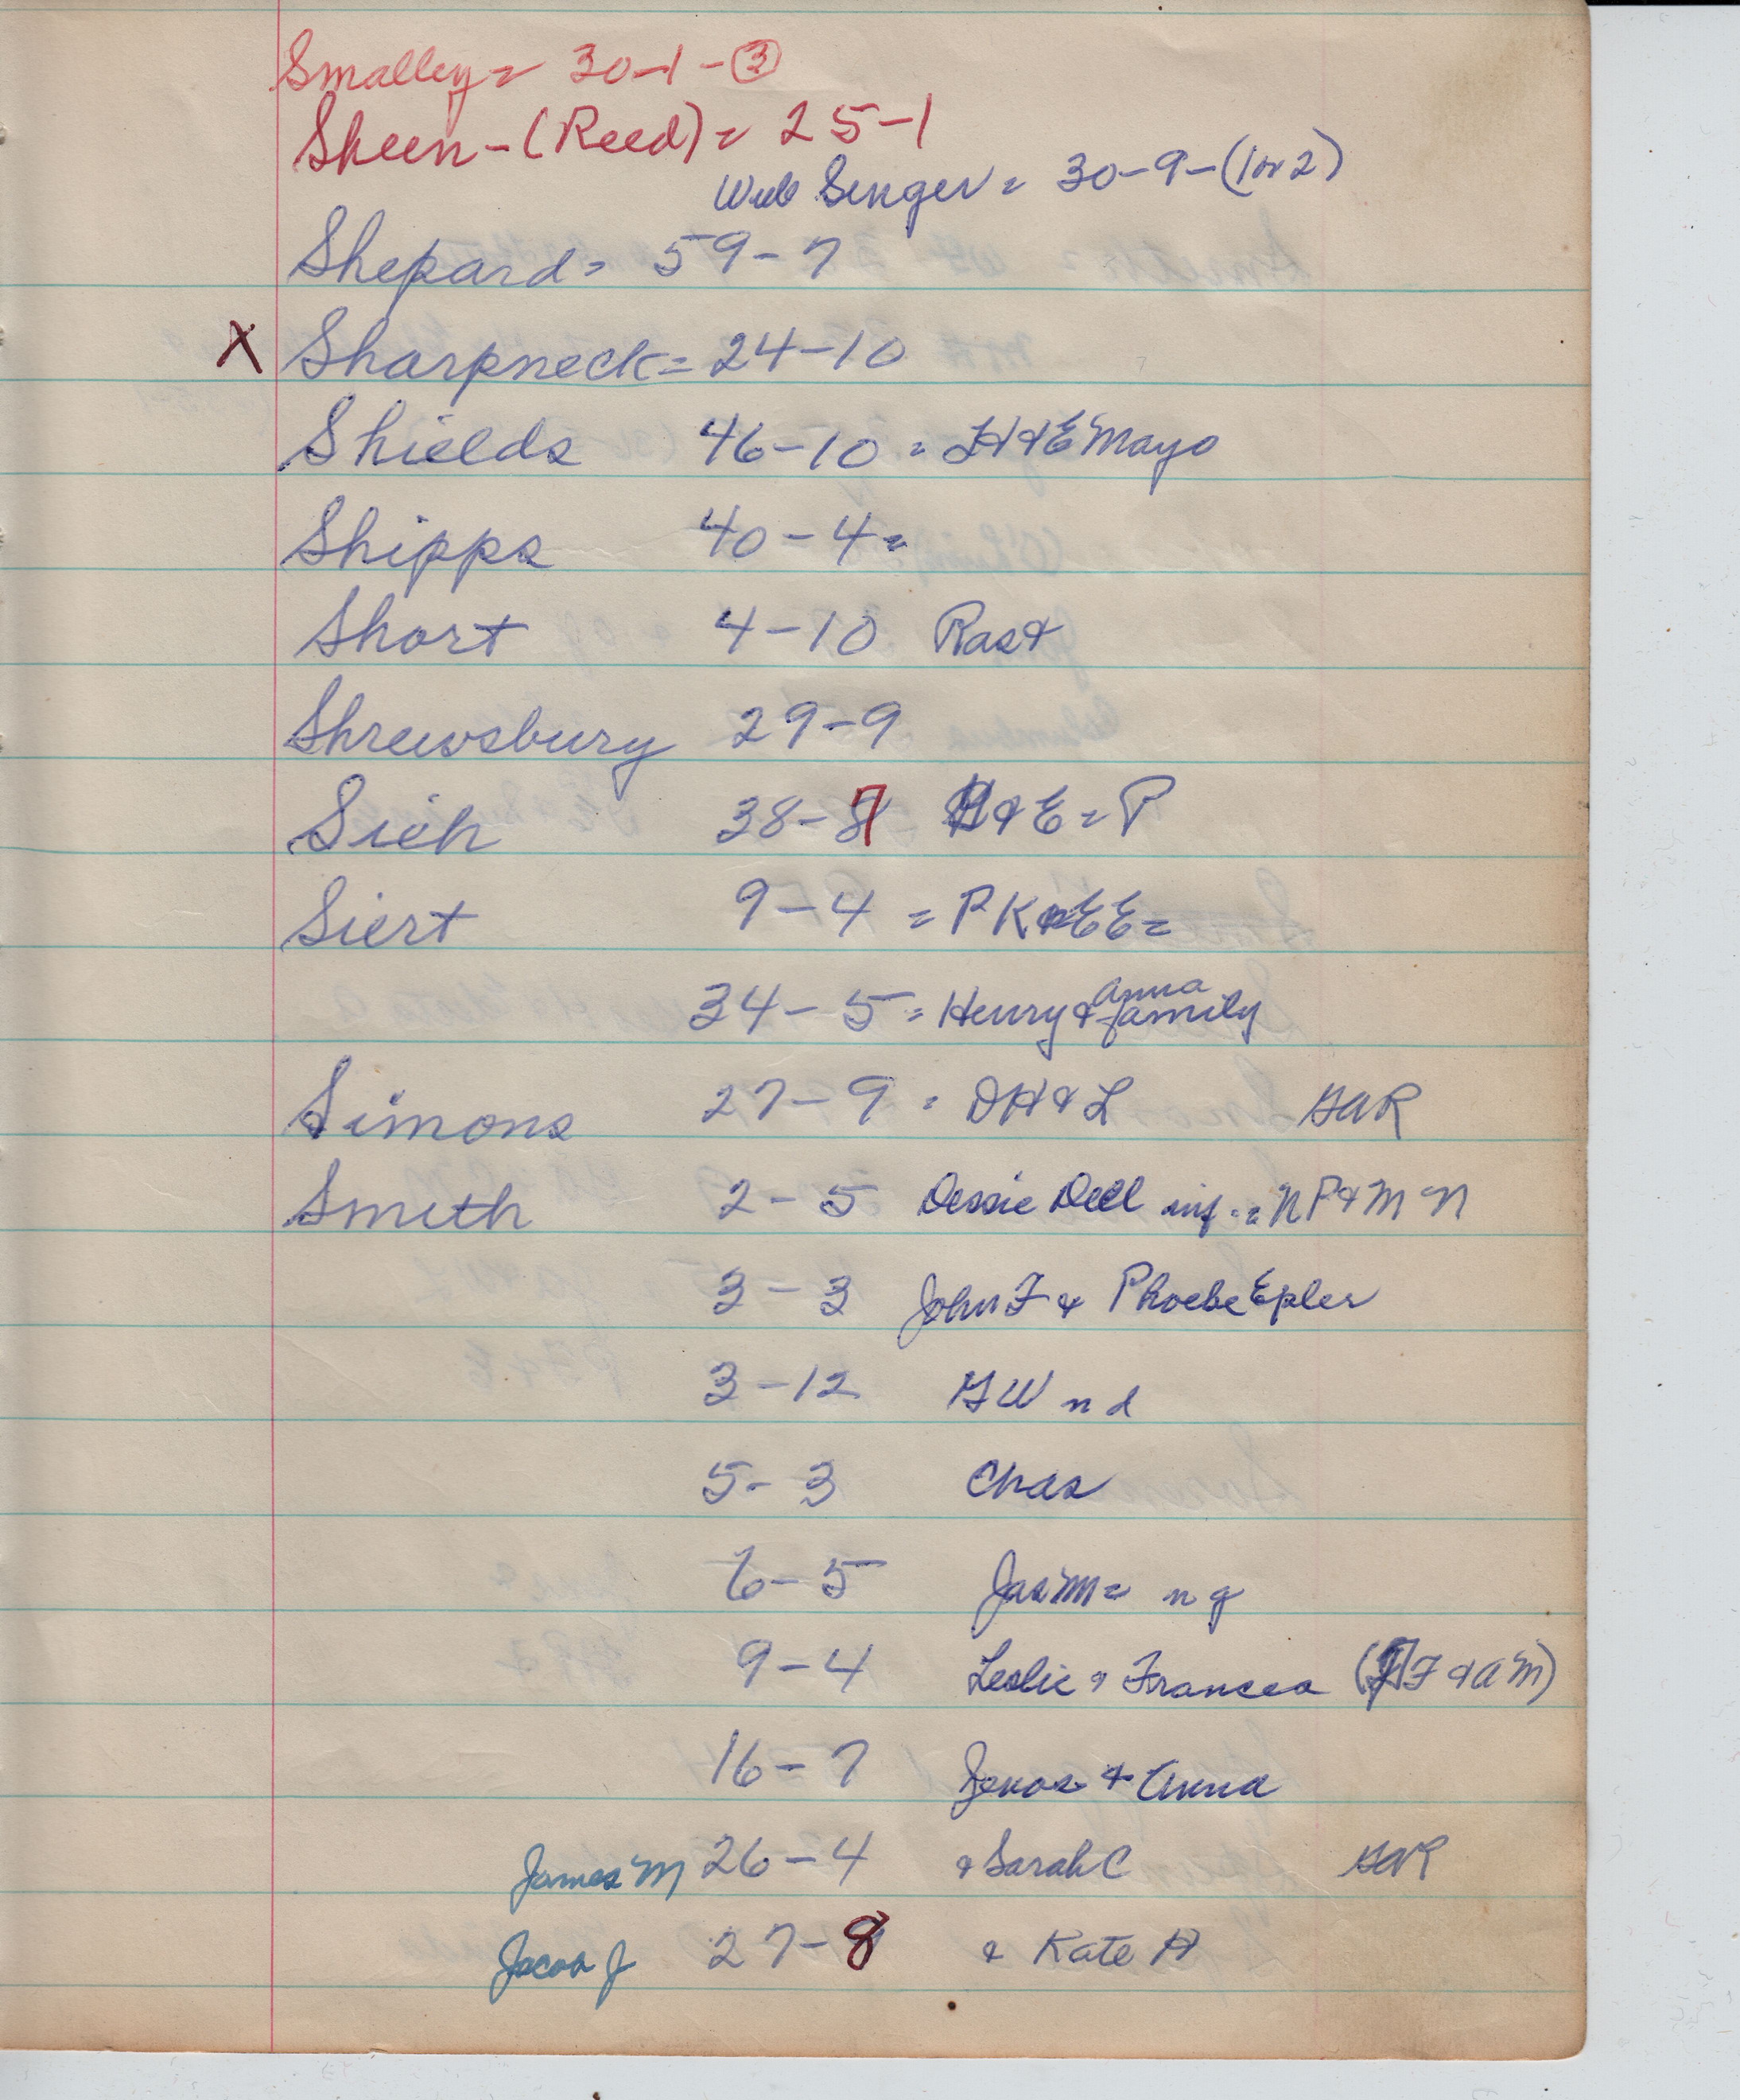 Smalley = 30-1-③
Skeen-(Reed) = 25-1
Web Singer = 30-9-(1 or 2)
Shepard = 59-7
X Sharpneck = 24-10
Shields 46-10 = & E Mayo
Shipps 40-4 =
Short 4-10
Shrewsbury 29-9
Sieh 38-7 H & E = P
Siert 9-4 = P K & E E =
34-5 = Henry & Anna family
Simons 27-9 = D H & L GAR
Smith 2-5 Dessie Dell inf. = N P & M N
3-3 John F & Phoebe Epler
3-12 G W n d
5-3 Chas
6-5 Jas M = n g
9-4 Leslie & Frances (J F & A M)
16-7 & Anna
James M 26-4 & Sarah C GAR
Jacob J 27-8 & Kate H